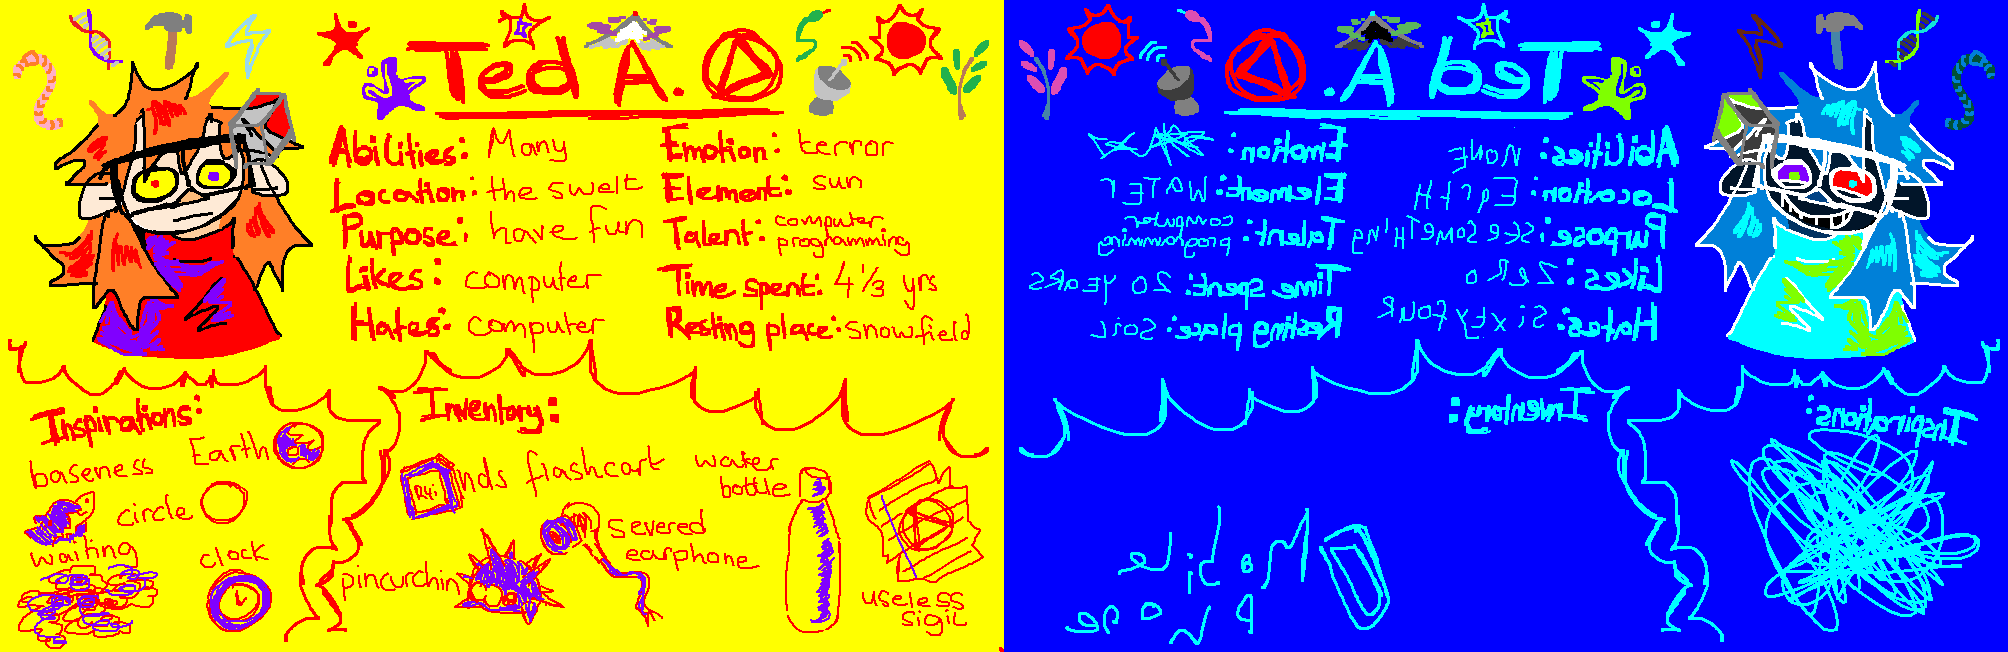 Ted A.
Abilities: Many
Location: the swelt
Purpose: have fun
Likes: computer
Hates: computer
Emotion: terror
Element: sun
Talent: computer programming
Time spent: 4 1/3 yrs
Resting place: snowfield
Inspirations:
Earth
baseness
circle
waiting
clock
Inventory:
R4i
nds flashcart
water
bottle
severed
earphone
pincurchin
useless
sigil
Ted A.
Abilities: NONE
Location: EarTH
Purpose: SEE SOMETHING
Likes: ZERO
Hates: SIXTYFOUR
Emotion:
Element: WATER
Talent: computer programming
Time spent: 20 YEARS
Resting place: SOIL
Inspirations:
Inventory:
Mobile